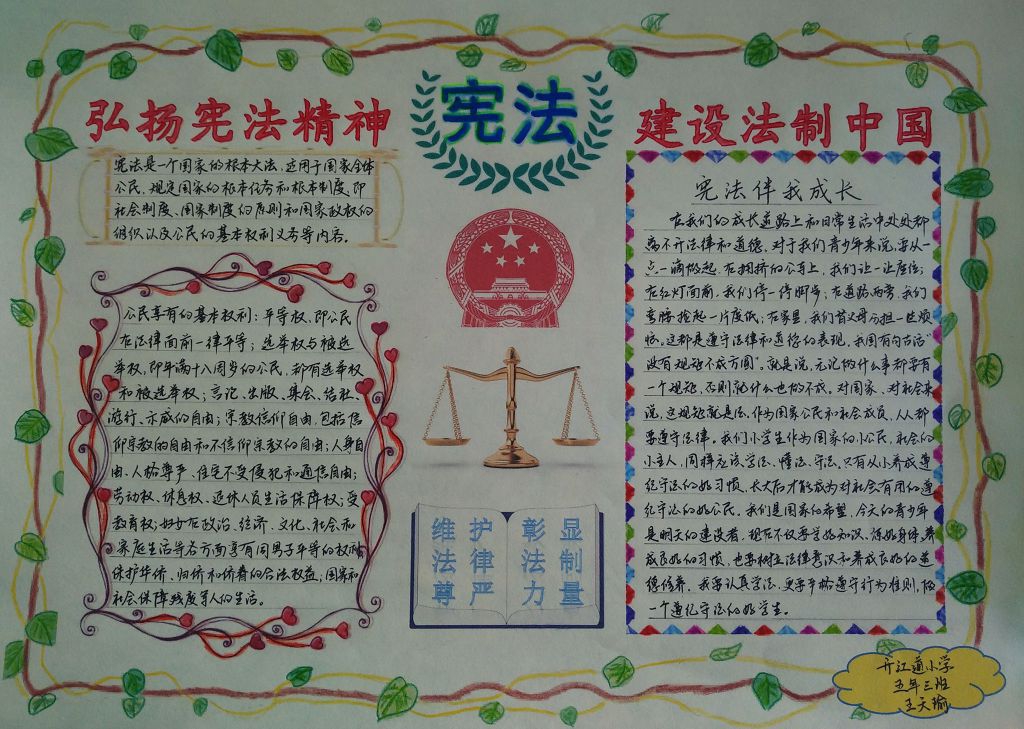 弘扬宪法精神
宪法
建设法制中国
宪法是一个国家的根本大法、适用于国家全体
公民、规定国家的根本任务和根本制度、即
社会制度、国家制度的原则和国家政权的
组织以及公民的基本权利义务等内容。
公民享有的基本权利：平等权、即公民
在法律面前一律平等；选举权与被选
举权、即年满十八周岁的公民、都有选举权
和被选举权；言论、出版、集会、结社、
游行、示威的自由；宗教信仰自由、包括信
仰宗教的自由和不信仰宗教的自由；人身自
由、人格尊严、住宅不受侵犯和通信自由；
劳动权、休息权、退休人员生活保障权；受
教育权；妇女在政治、经济、文化、社会和
家庭生活等各方面享有同男子平等的权利
保护华侨、归侨和侨眷的合法权益；国家和
社会保障残废军人的生活。
维护 彰显
法律 法制
尊严 力量
宪法伴我成长
在我们的成长道路上和日常生活中处处都
离不开法律和道德、对于我们青少年来说、要从一
点一滴做起、在拥挤的公车上、我们让一让座位；
在红灯面前、我们停一停脚步；在道路两旁、我们
弯腰捡起一片废纸；在家里、我们为父母分担一些烦
恼、这都是遵守法律和道德的表现、我国有句古话
"没有规矩不成方圆"。就是说、无论做什么事都要有
一个规矩、否则就什么也做不成、对国家、对社会来
说、这规矩就是法、作为国家公民和社会成员、人人都
要遵守法律。我们小学生作为国家的小公民、社会的
小主人、同样应该学法、懂法、守法、只有从小养成遵
纪守法的好习惯、长大后才能成为对社会有用的遵
纪守法的好公民。我们是国家的希望、今天的青少年
是明天的建设者、现在不仅要学好知识、练好身体、养
成良好的习惯、也要树立法律意识和养成良好的道
德修养、我要认真学法、更要严格遵守行为准则、做
一个遵纪守法的好学生。
开江道小学
五年三班
王天瑜